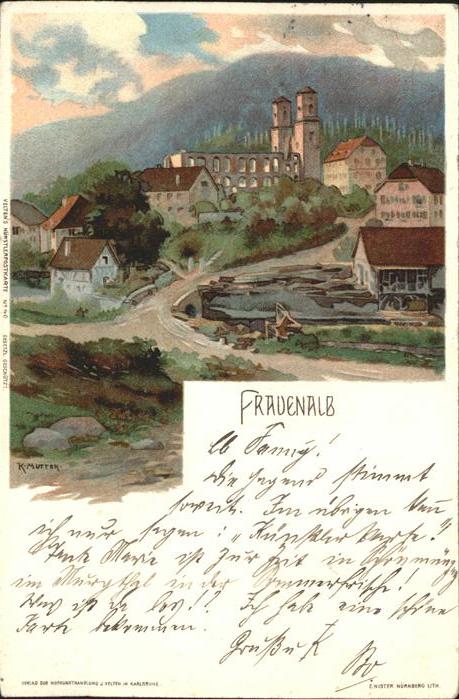 VELTEN'S KÜNSTLERPOSTKARTE No GESETZL. GESCHÜTZT.
K. MUTTER
FRAUENALB
Lb Fanny!
die Gegend stimmt
soweit. Im übrigen kann
ich nur sagen: „Künstler Karte!"
Tante Marie ist zur Zeit in Schönmünz
im Murgthal in der Sommerfrische!
Was ist da los!? Ich habe eine schöne
Karte bekommen.
Gruß u K
VERLAG DER HOFKUNSTHANDLUNG J. VELTEN IN KARLSRUHE.
E. NISTER NÜRNBERG LITH.